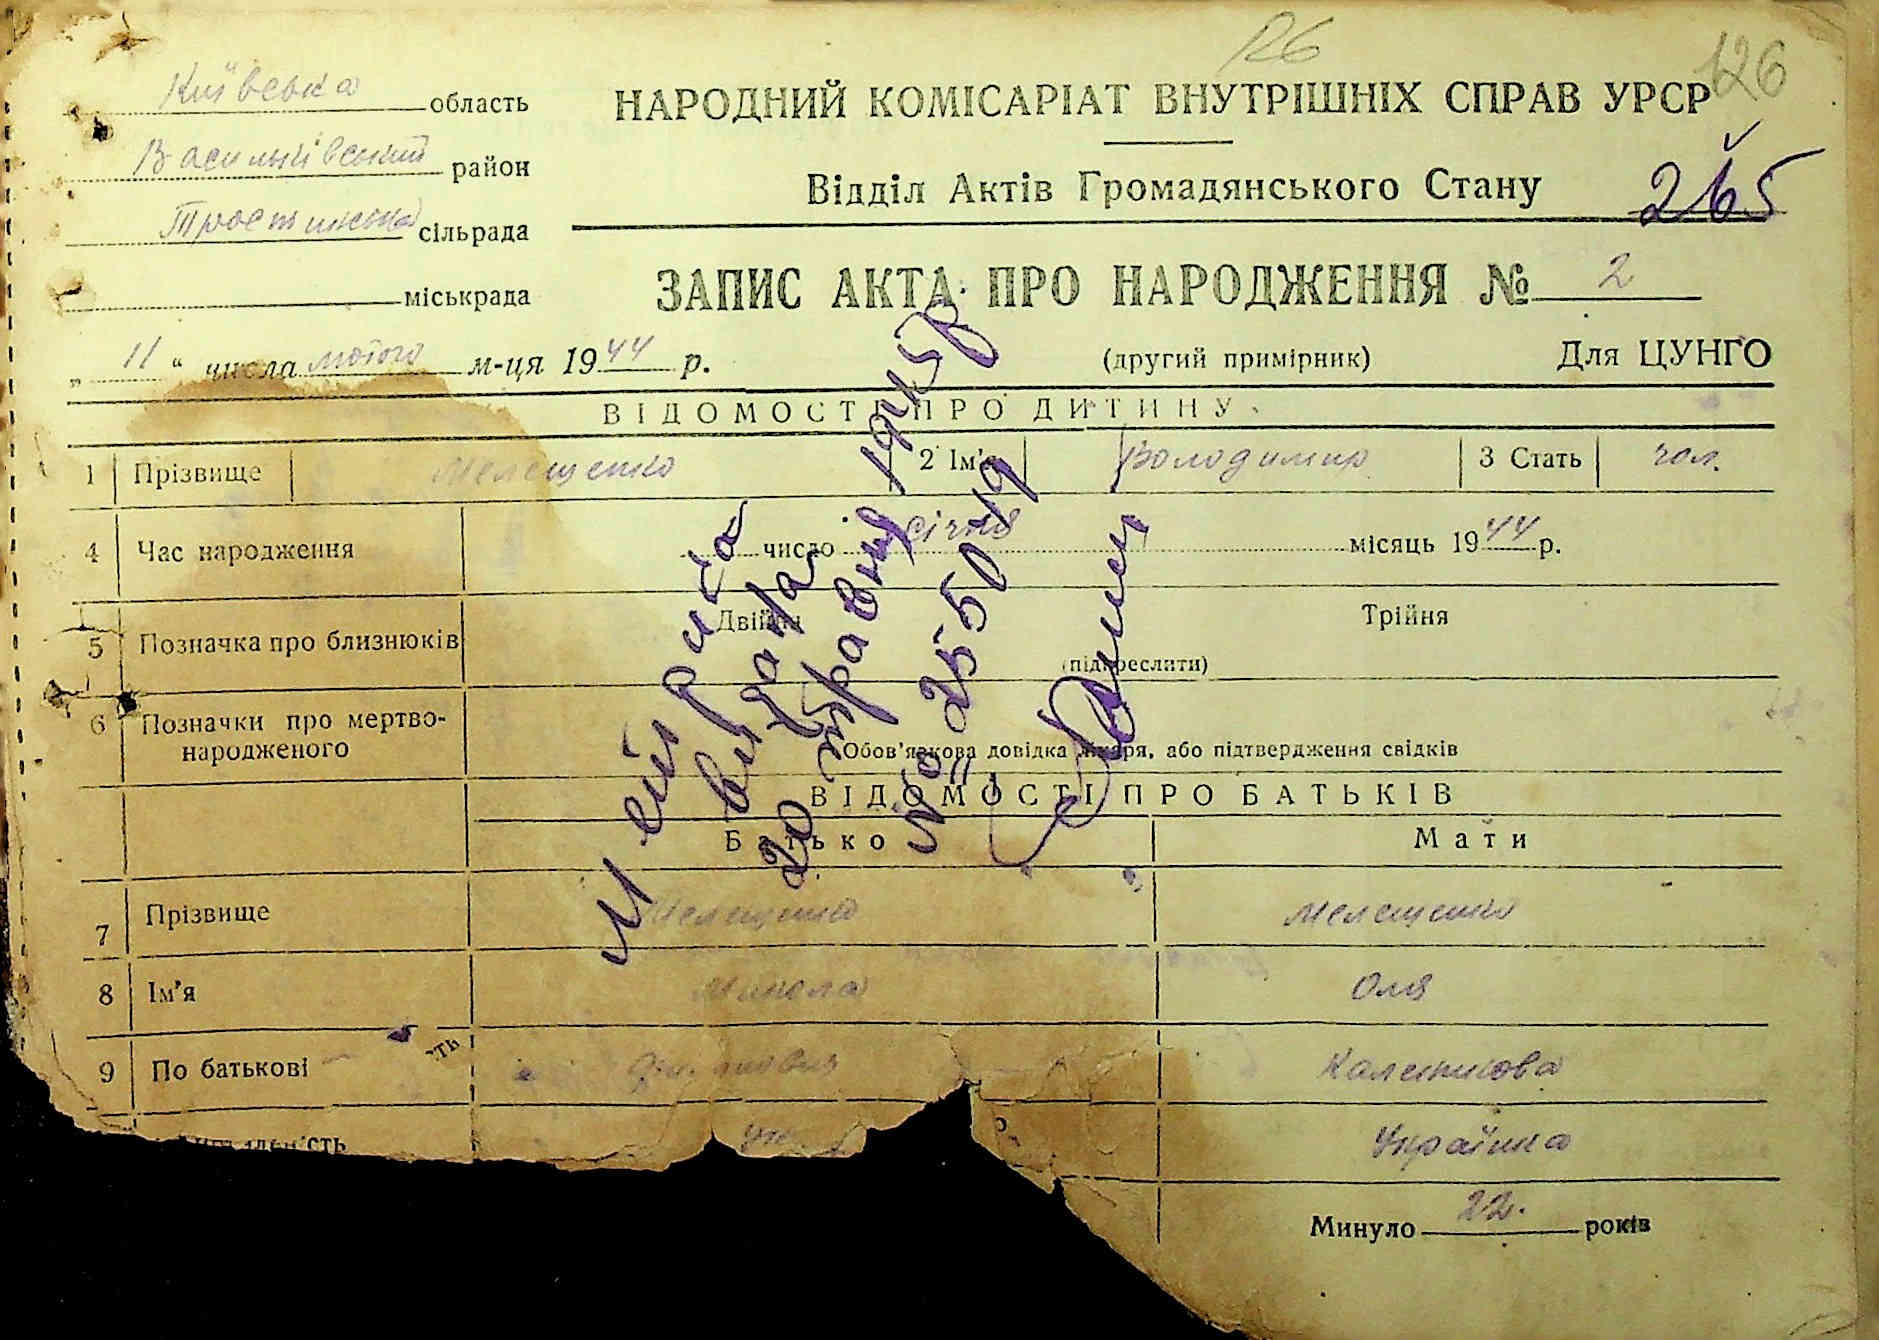 126
126
Київська область
НАРОДНИЙ КОМІСАРІАТ ВНУТРІШНІХ СПРАВ УРСР
Васильківський район
Відділ Актів Громадянського Стану
265
Тростинська сільрада
міськрада
ЗАПИС АКТА ПРО НАРОДЖЕННЯ № 2
„ 11 “ числа лютого м-ця 1944 р.
(другий примірник)
Для ЦУНГО
ВІДОМОСТІ ПРО ДИТИНУ
1 Прізвище Мелещенко 2 Ім'я Володимир 3 Стать чол.
4 Час народження число січня місяць 1944 р.
5 Позначка про близнюків Двійня Трійня
(підкреслити)
6 Позначки про мертво-
народженого
Обов'язкова довідка лікаря, або підтвердження свідків
ВІДОМОСТІ ПРО БАТЬКІВ
Батько Мати
7 Прізвище Мелещенко Мелещенко
8 Ім'я Микола Оля
9 По батькові Калениківа
Українка
Минуло 22. років
Метрика
видана
20 травня 1945 р
№ 255049